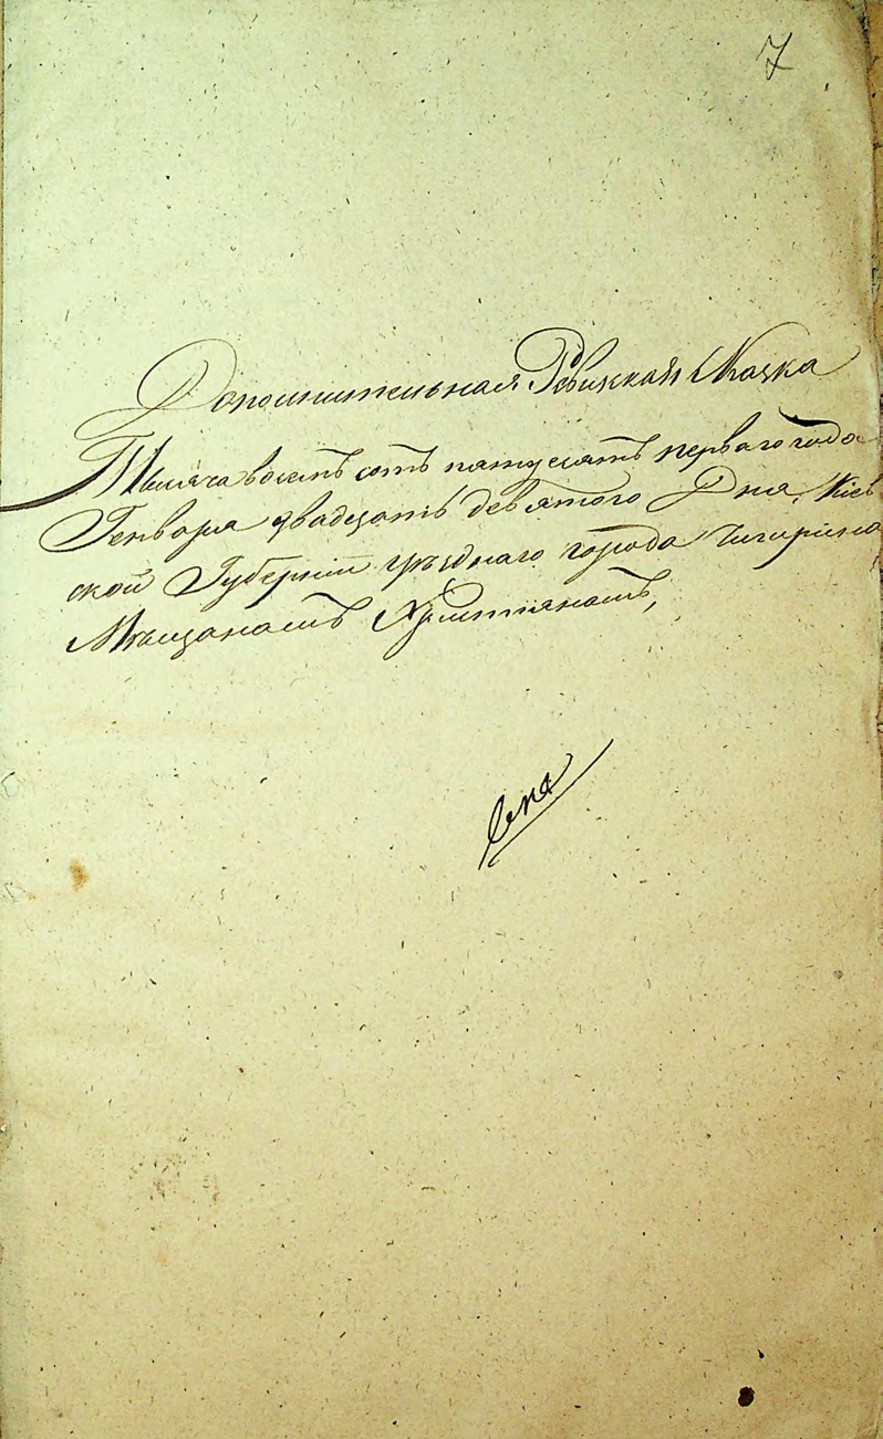 7
Дополнительная Ревизская Сказка
Тысяча восемъ сотъ пятдесятъ перваго года
Генваря двадцать девятого Дня, Кіев
ской Губерніи уѣзднаго города Чигирина
Мѣщанамъ Христіянамъ,